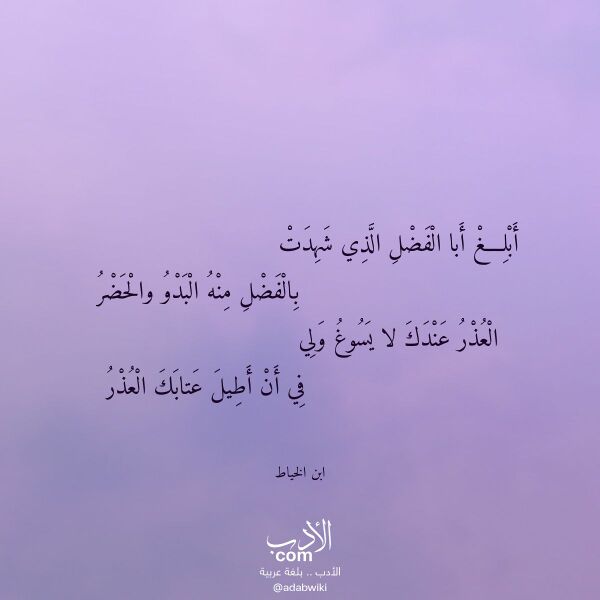 أَبْلِـــغْ أَبا الْفَضْلِ الَّذِي شَهِدَتْ
بِالْفَضْلِ مِنْهُ الْبَدْوُ والْحَضْرُ
الْعُذْرُ عَنْدَكَ لا يَسُوغُ وَلِي
فِي أَنْ أَطِيلَ عَتابَكَ الْعُذْرُ
ابن الخياط
الأدب
com
الأدب .. بلغة عربية
@adabwiki